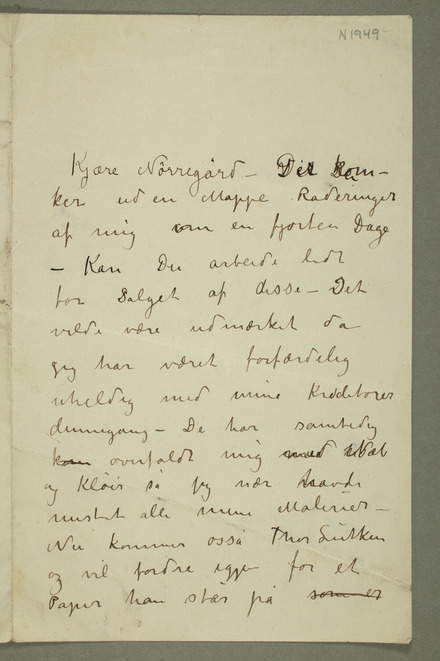 N1949
Kjære Nörregård – Det kom-
mer ud en Mappe Raderinger
af mig om en fjorten Dage
– Kan Du arbeide lidt
for Salget af disse – Det
vilde være udmærket da
jeg har været forfærdelig
uheldig med mine Kreditorer
dennegang – De har samtidig
kom overfaldt mig med Næb
og Klöer så jeg nær havde
mistet alle mine Malerier –
Nu kommer osså Thor Lütken
og vil fordre igjen for et
Papir han står på som er